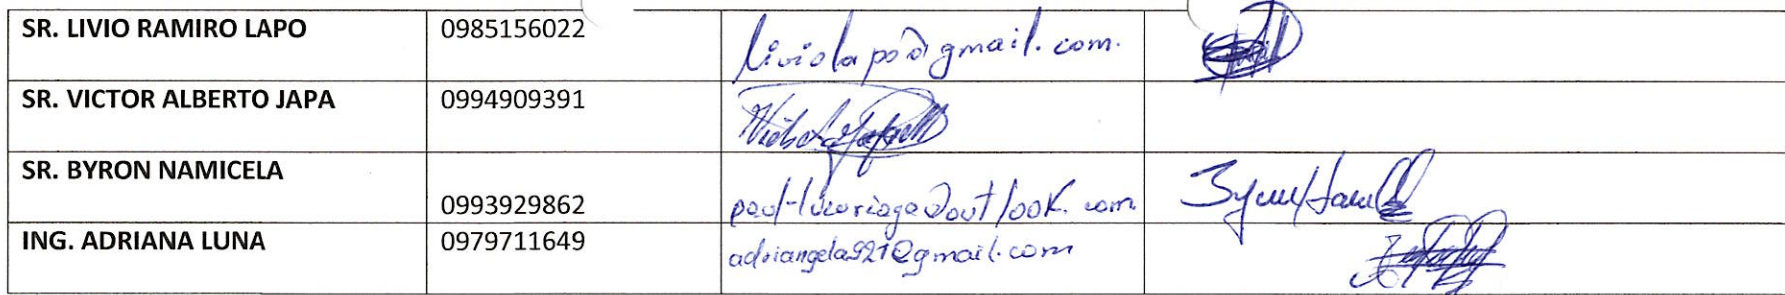 SR. LIVIO RAMIRO LAPO 0985156022 liviolapo@gmail.com.
SR. VICTOR ALBERTO JAPA 0994909391
SR. BYRON NAMICELA
0993929862 @outlook.com
ING. ADRIANA LUNA 0979711649 adriangela921@gmail.com